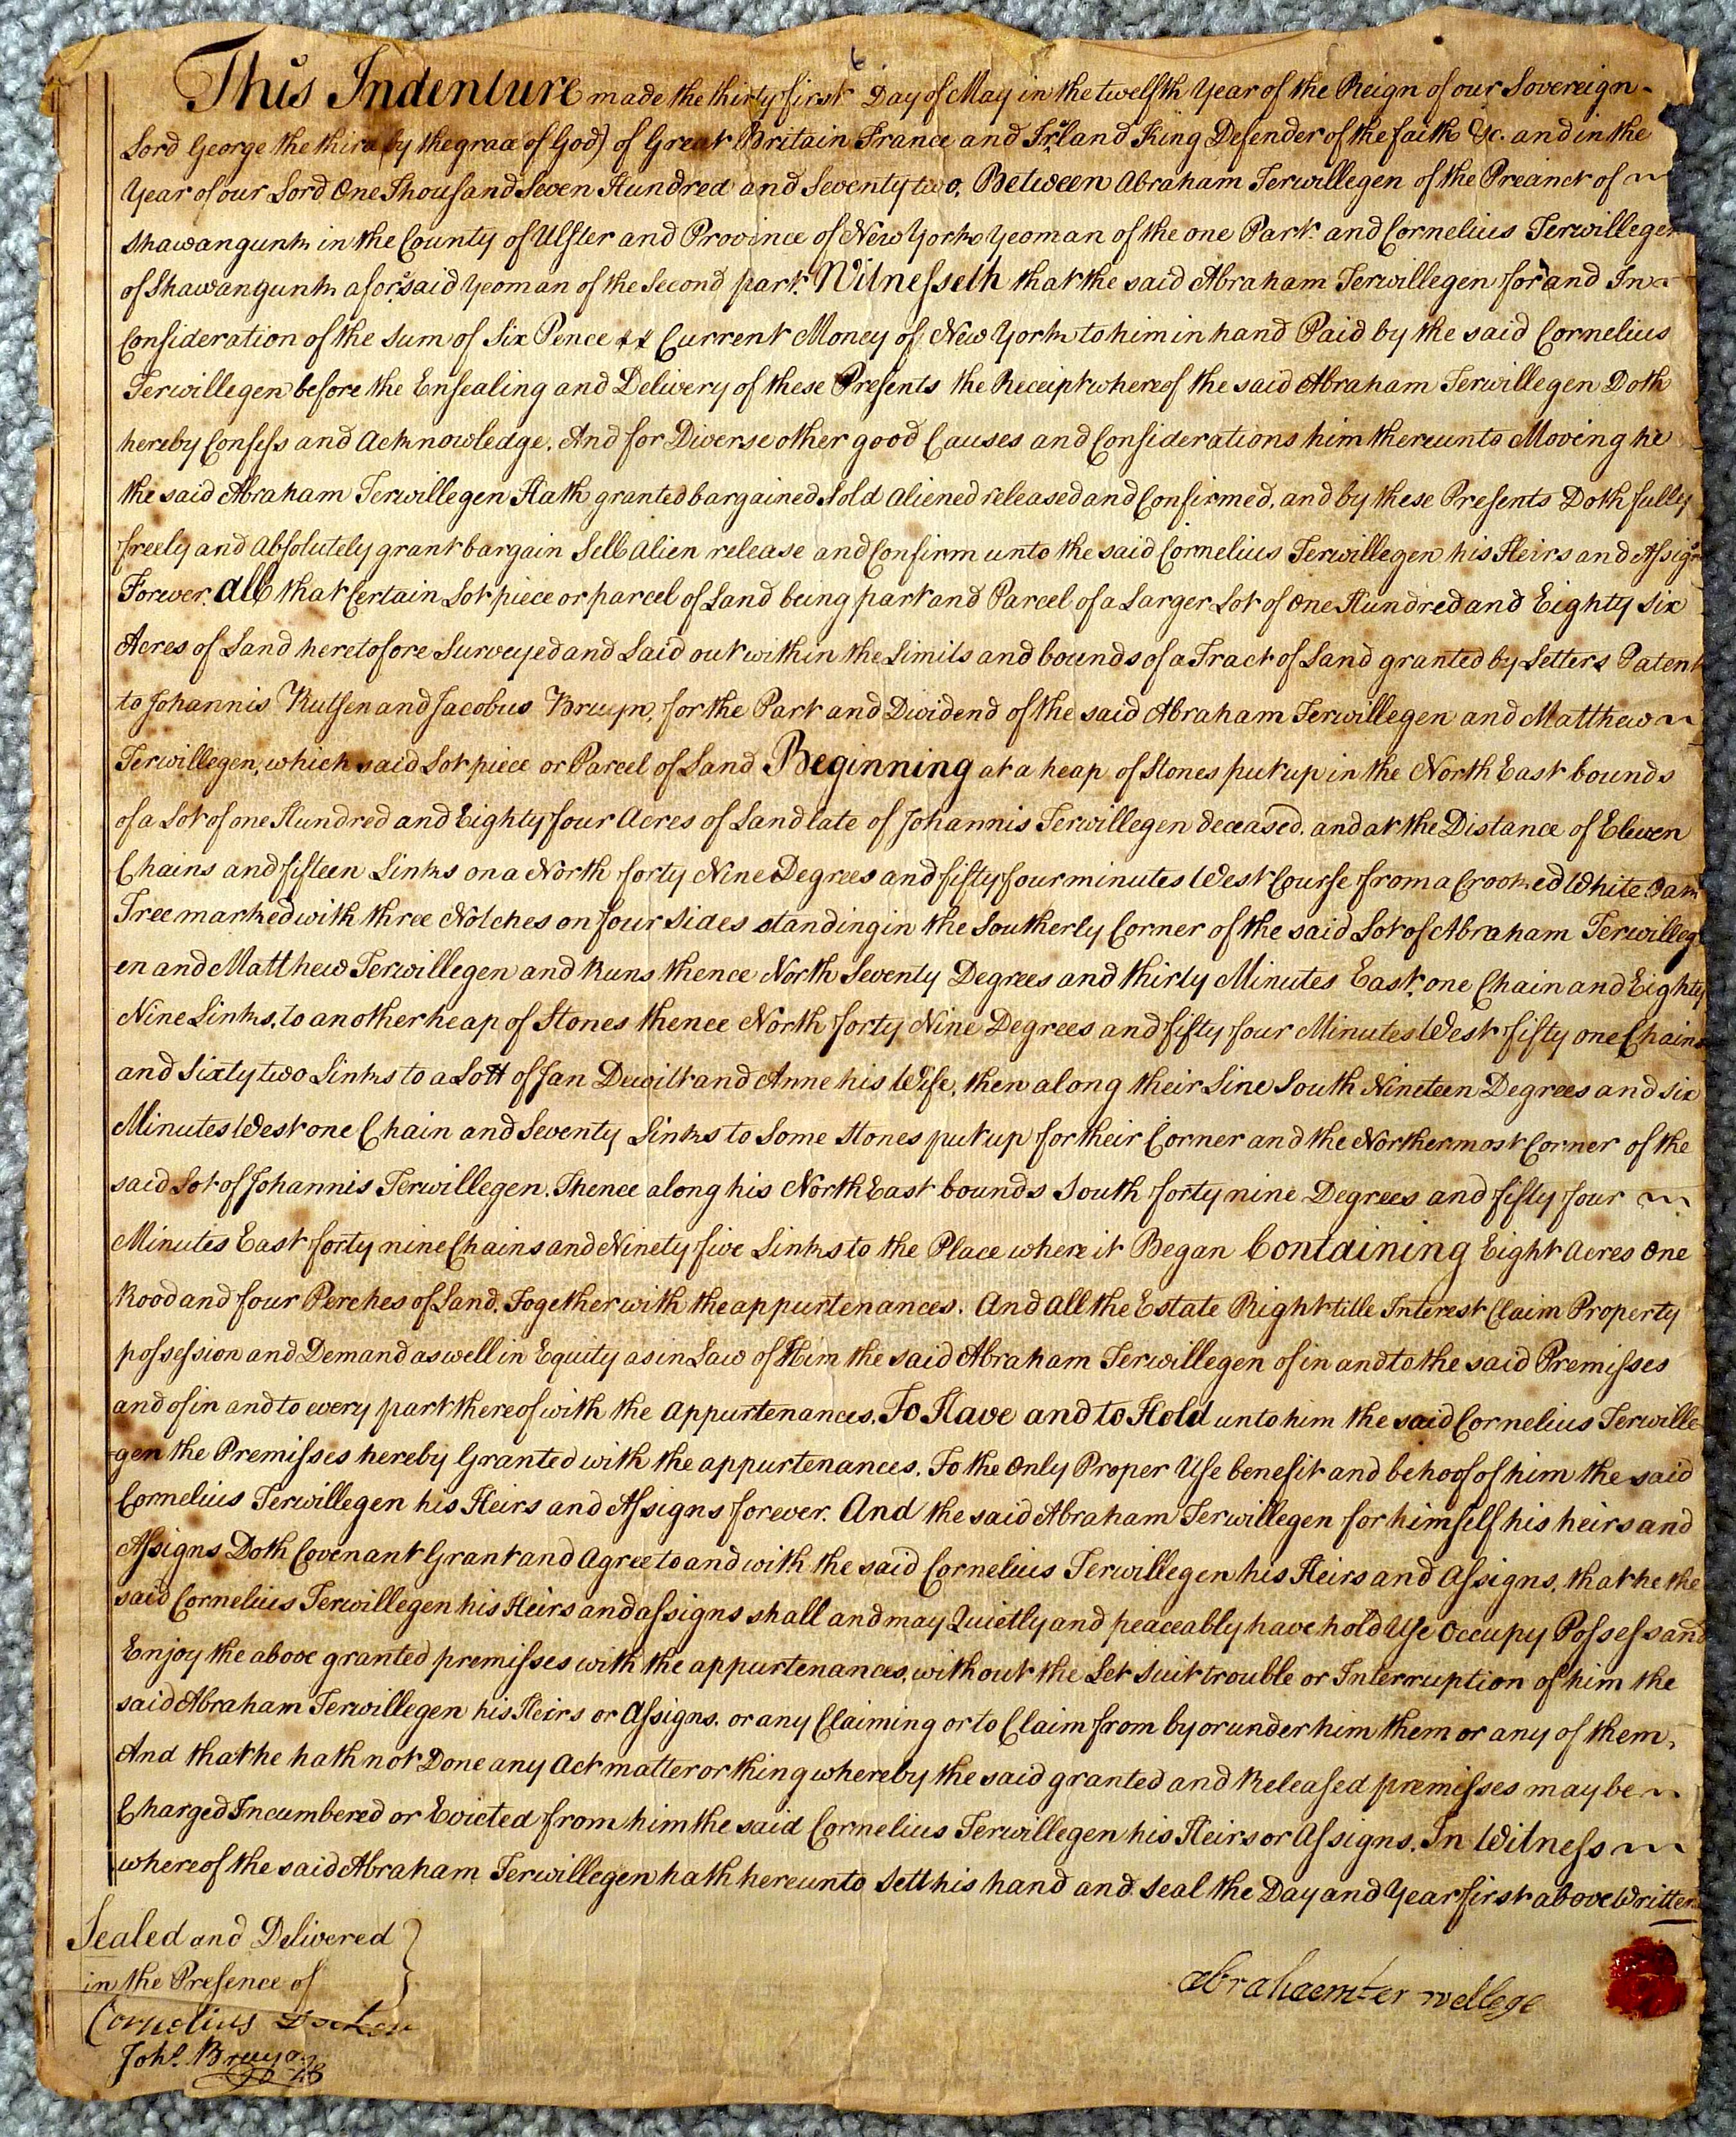 This Indenture made the thirty first Day of May in the twelfth Year of the Reign of our Sovereign
Lord George the third (by the grace of God) of Great Britain France and Ireland King Defender of the faith &c. and in the
Year of our Lord One Thousand Seven Hundred and Seventy two. Between Abraham Terwillegen of the Precinct of
Shawangunk in the County of Ulster and Province of New York Yeoman of the one Part and Cornelius Terwillegen
of Shawangunk aforesaid Yeoman of the Second part. Witnesseth that the said Abraham Terwillegen for and In
Consideration of the Sum of Six Pence Current Money of New York to him in hand Paid by the said Cornelius
Terwillegen before the Ensealing and Delivery of these Presents the Receipt whereof the said Abraham Terwillegen Doth
hereby Confess and Acknowledge. And for Diverse other good Causes and Considerations him thereunto Moving he
the said Abraham Terwillegen Hath granted bargained Sold Aliened released and Confirmed, and by these Presents Doth fully
freely and Absolutely grant bargain Sell Alien release and Confirm unto the said Cornelius Terwillegen his Heirs and Assigns
Forever. All that Certain Lot piece or parcel of Land being part and Parcel of a Larger Lot of One Hundred and Eighty Six
Acres of Land heretofore Surveyed and Laid out within the Limits and bounds of a Tract of Land granted by Letters Patent
to Johannis Rutsen and Jacobus Bruyn, for the Part and Dividend of the said Abraham Terwillegen and Matthew
Terwillegen, which said Lot piece or Parcel of Land Beginning at a heap of Stones put up in the North East bounds
of a Lot of one Hundred and Eighty four Acres of Land late of Johannis Terwillegen deceased. and at the Distance of Eleven
Chains and fifteen Links on a North forty Nine Degrees and fifty four minutes West Course from a Crooked White Oak
Tree marked with three Notches on four Sides standing in the Southerly Corner of the said Lot of Abraham Terwilleg
-en and Matthew Terwillegen and Runs thence North Seventy Degrees and thirty Minutes East, one Chain and Eighty
Nine Links, to another heap of Stones thence North forty Nine Degrees and fifty four Minutes West fifty one Chains
and Sixty two Links to a Lott of Jan Dewitt and Anne his Wife, then along their Line South Nineteen Degrees and six
Minutes West one Chain and Seventy Links to Some Stones put up for their Corner and the Northermost Corner of the
said Lot of Johannis Terwillegen. Thence along his North East bounds South forty nine Degrees and fifty four
Minutes East forty nine Chains and Ninety five Links to the Place where it Began Containing Eight Acres One
Rood and four Perches of Land. Together with the appurtenances. And All the Estate Right title Interest Claim Property
possession and Demand as well in Equity as in Law of Him the said Abraham Terwillegen of in and to the said Premisses
and of in and to every part thereof with the Appurtenances. To Have and to Hold unto him the said Cornelius Terwille
-gen the Premisses hereby Granted with the appurtenances. To the Only Proper Use benefit and behoof of him the said
Cornelius Terwillegen his Heirs and Assigns forever. And the said Abraham Terwillegen for himself his heirs and
Assigns Doth Covenant Grant and Agree to and with the said Cornelius Terwillegen his Heirs and Assigns, that he the
said Cornelius Terwillegen his Heirs and assigns shall and may Quietly and peaceably have hold Use Occupy Possess and
Enjoy the above granted premisses with the appurtenances, without the Let Suit trouble or Interruption of him the
said Abraham Terwillegen his Heirs or Assigns. or any Claiming or to Claim from by or under him them or any of them.
And that he hath not Done any Act matter or thing whereby the said granted and Released premisses may be
Charged Incumbered or Evicted from him the said Cornelius Terwillegen his Heirs or Assigns. In Witness
whereof the said Abraham Terwillegen hath hereunto Sett his hand and Seal the Day and Year first above Written
Sealed and Delivered
in the Presence of
abrahaem ter wellege
Cornelius
Joh<sup>s</sup>. Bruyn